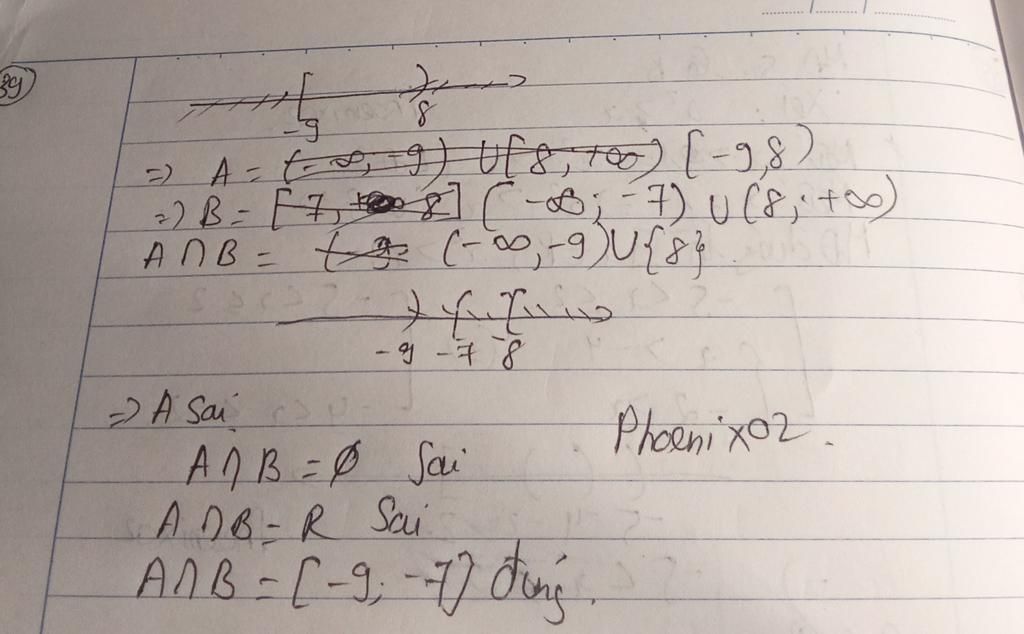 39
-9 8
=> A = (-∞, -9) ∪ [8, +∞) [-9,8)
=> B = [7, +∞ 8] (-∞; -7) ∪ (8; +∞)
A ∩ B = (-9 (-∞, -9) ∪ {8}
-9 -7 -8
=> A Sai
A ∩ B = ∅ Sai
Phoenix02.
A ∩ B = R Sai
A ∩ B = [-9; -7] đúng.